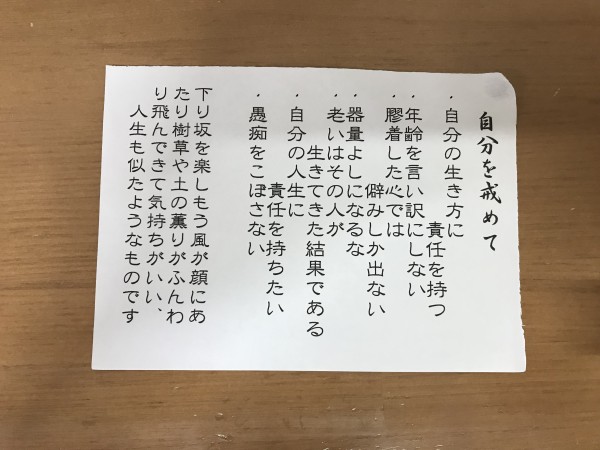 自分を戒めて
・自分の生き方に
責任を持つ
・年齢を言い訳にしない
・膠着した心では
僻みしか出ない
・器量よしになるな
・老いはその人が
生きてきた結果である
・自分の人生に
責任を持ちたい
・愚痴をこぼさない
下り坂を楽しもう風が顔にあ
たり樹草や土の薫りがふんわ
り飛んできて気持ちがいい、
人生も似たようなものです